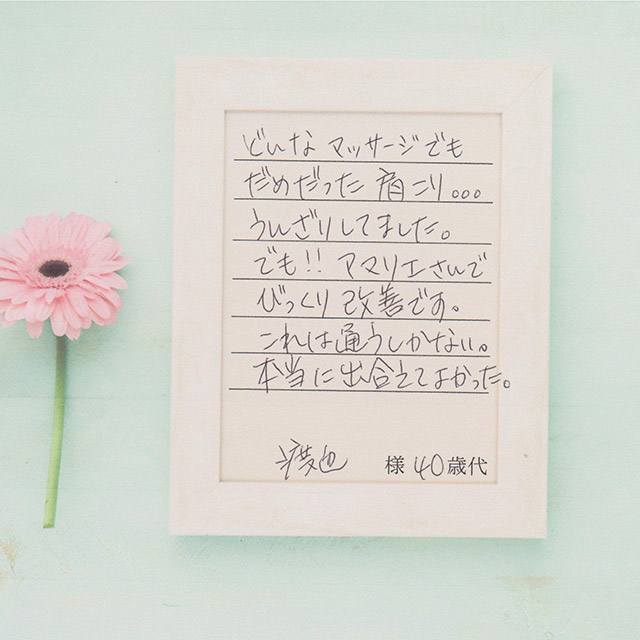 どんなマッサージでも
だめだった肩こり...
うんざりしてました。
でも!! アマリエさんで
びっくり改善です。
これは通うしかない。
本当に出会えてよかった。
様 40歳代